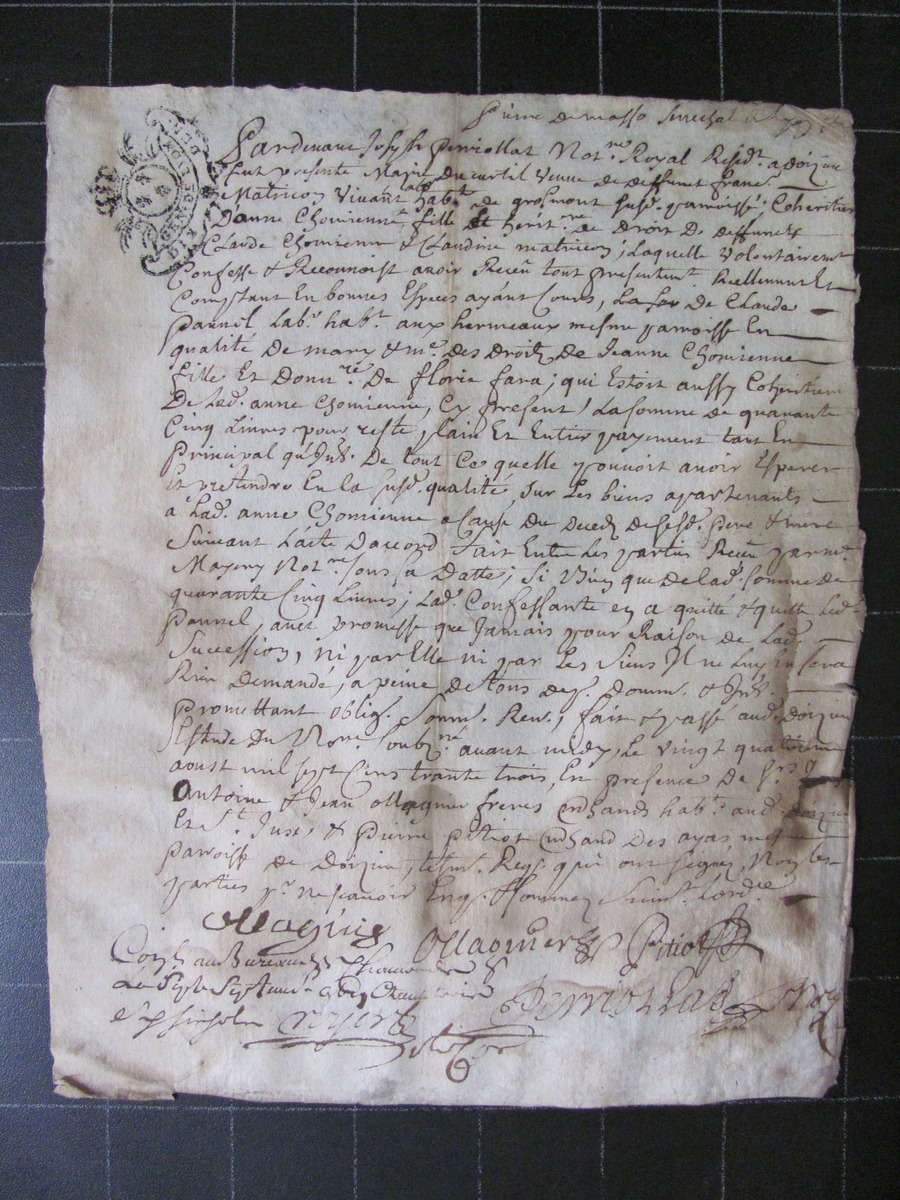 Pierre de masso
Pardevant Joseph Perriollat Not.re Royal Resid.t a doizieu
fut presente Marie du curtil veuve de deffunct Franc.
Matricon vivant lab.r hab.t de grosmont susd. parroisse, Coheritiere
Danne Chomienne fille Et herit.re de Droit De deffuncts
Claude Chomienne & Claudine matricon; Laquelle Volontairem.t
Confesse & Recounoist avoir Receu tout presentem.t Reellement Et
Comptant En bonnes Especes ayant Cours, de Claude
Pannel lab.r hab.t aux hermeaux mesme parroisse En
qualité De mary & m.e des Droits De Jeanne Chomienne
fille Et Donn.re De florie fara; qui Estoit aussy Coheritiere
De lad. anne Chomienne, Cy present, La somme de quarante
Cinq Livres pour reste, plain Et Entier payement tant En
Principal qu'Int. De tout Ce quelle pouvoit avoir Esperer
Et pretendre En la susd. qualité, sur Les biens apartenants
a Lad. anne Chomienne a Cause Du Decedz desesd. pere & mere
Suivant Lacte Daccord fait Entre Les parties Receu par m.e
Not.re sous sa Datte; Si Bien que de lad. somme de
quarante Cinq Livres; Lad. Confessante en a quitté & quitte Led.
Pannel, avec promesse que Jamais pour Raison de Lad.
Succession, ni par Elle ni par Les Siens Il ne Luy En sera
Rien Demandé, a peine de tous desp. domm. & Int.
Promettant oblig. Soum. Ren., fait & passé aud. doizieu
Estude Du No.re Soubz.né avant midy, Le vingt quatrieme
aoust mil sept Cens trante trois, En presence de S.rs
Antoine & Jean Ollagnier freres mchands hab.t aud. doizieu
Et S.t Just, & Pierre pitiot mchand Des ayas mesme
Parroisse de Doizieu, tesm. Req. qui ont signés, Non les
parties p.r ne scavoir Enq. & sommez Suiv.t Lord.ce
Ollagnier
Ollagnier Pitiot
Con.lé au Bureau de St Chaumond
Le sept Septemb.
Perriollat No.re